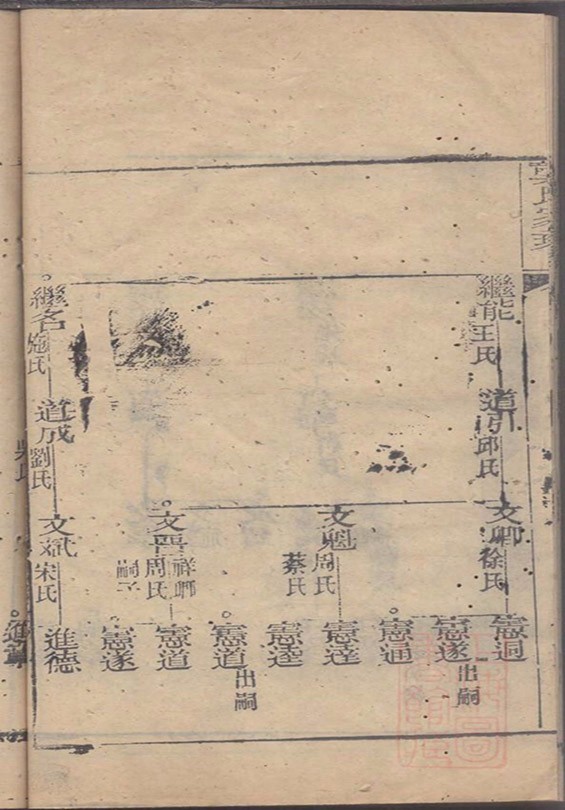 繼能王氏
道引邱氏
文卿徐氏
憲迴
憲遂出嗣
憲通
文魁周氏
蔡氏
憲達
憲逵
憲道出嗣
文晋祥卿
周氏
嗣子
憲道
憲遂
繼名寇氏
道成劉氏
文斌宋氏
進德